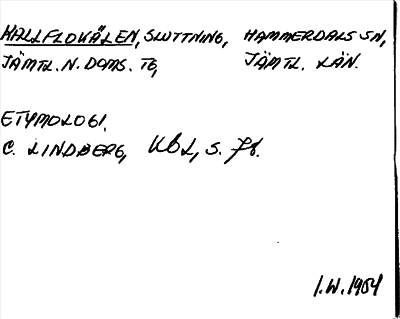 HALLFLOKÄLEN, SLUTTNING, HAMMERDALS SN,
JÄMTL. N. DOMS. TG, JÄMTL. LÄN.
ETYMOLOGI.
C. LINDBERG, KBL, S. 78.
I.W. 1984